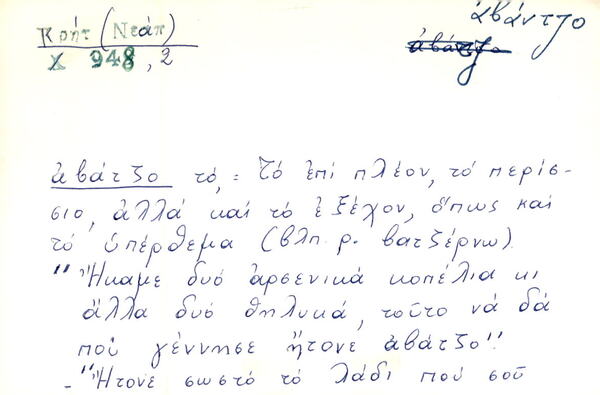 Κρήτ (Νεάπ)
Χ 948, 2
ἀβάντζο
ἀβάτζο
ἀβάτζο τό, = Τό ἐπί πλέον, τό περίσ-
σιο, ἀλλά καί τό ἐξέχον, ὅπως καί
τό ὑπέρθεμα (βλπ. ρ. βατζέρνω).
"Ἤκαμε δυό ἀρσενικά κοπέλια κι
ἄλλα δυό θηλυκά, τοῦτο νά δά
πού γέννησε ἤτονε ἀβάτζο".
- "Ἤτονε σωστό τό λάδι πού σοῦ